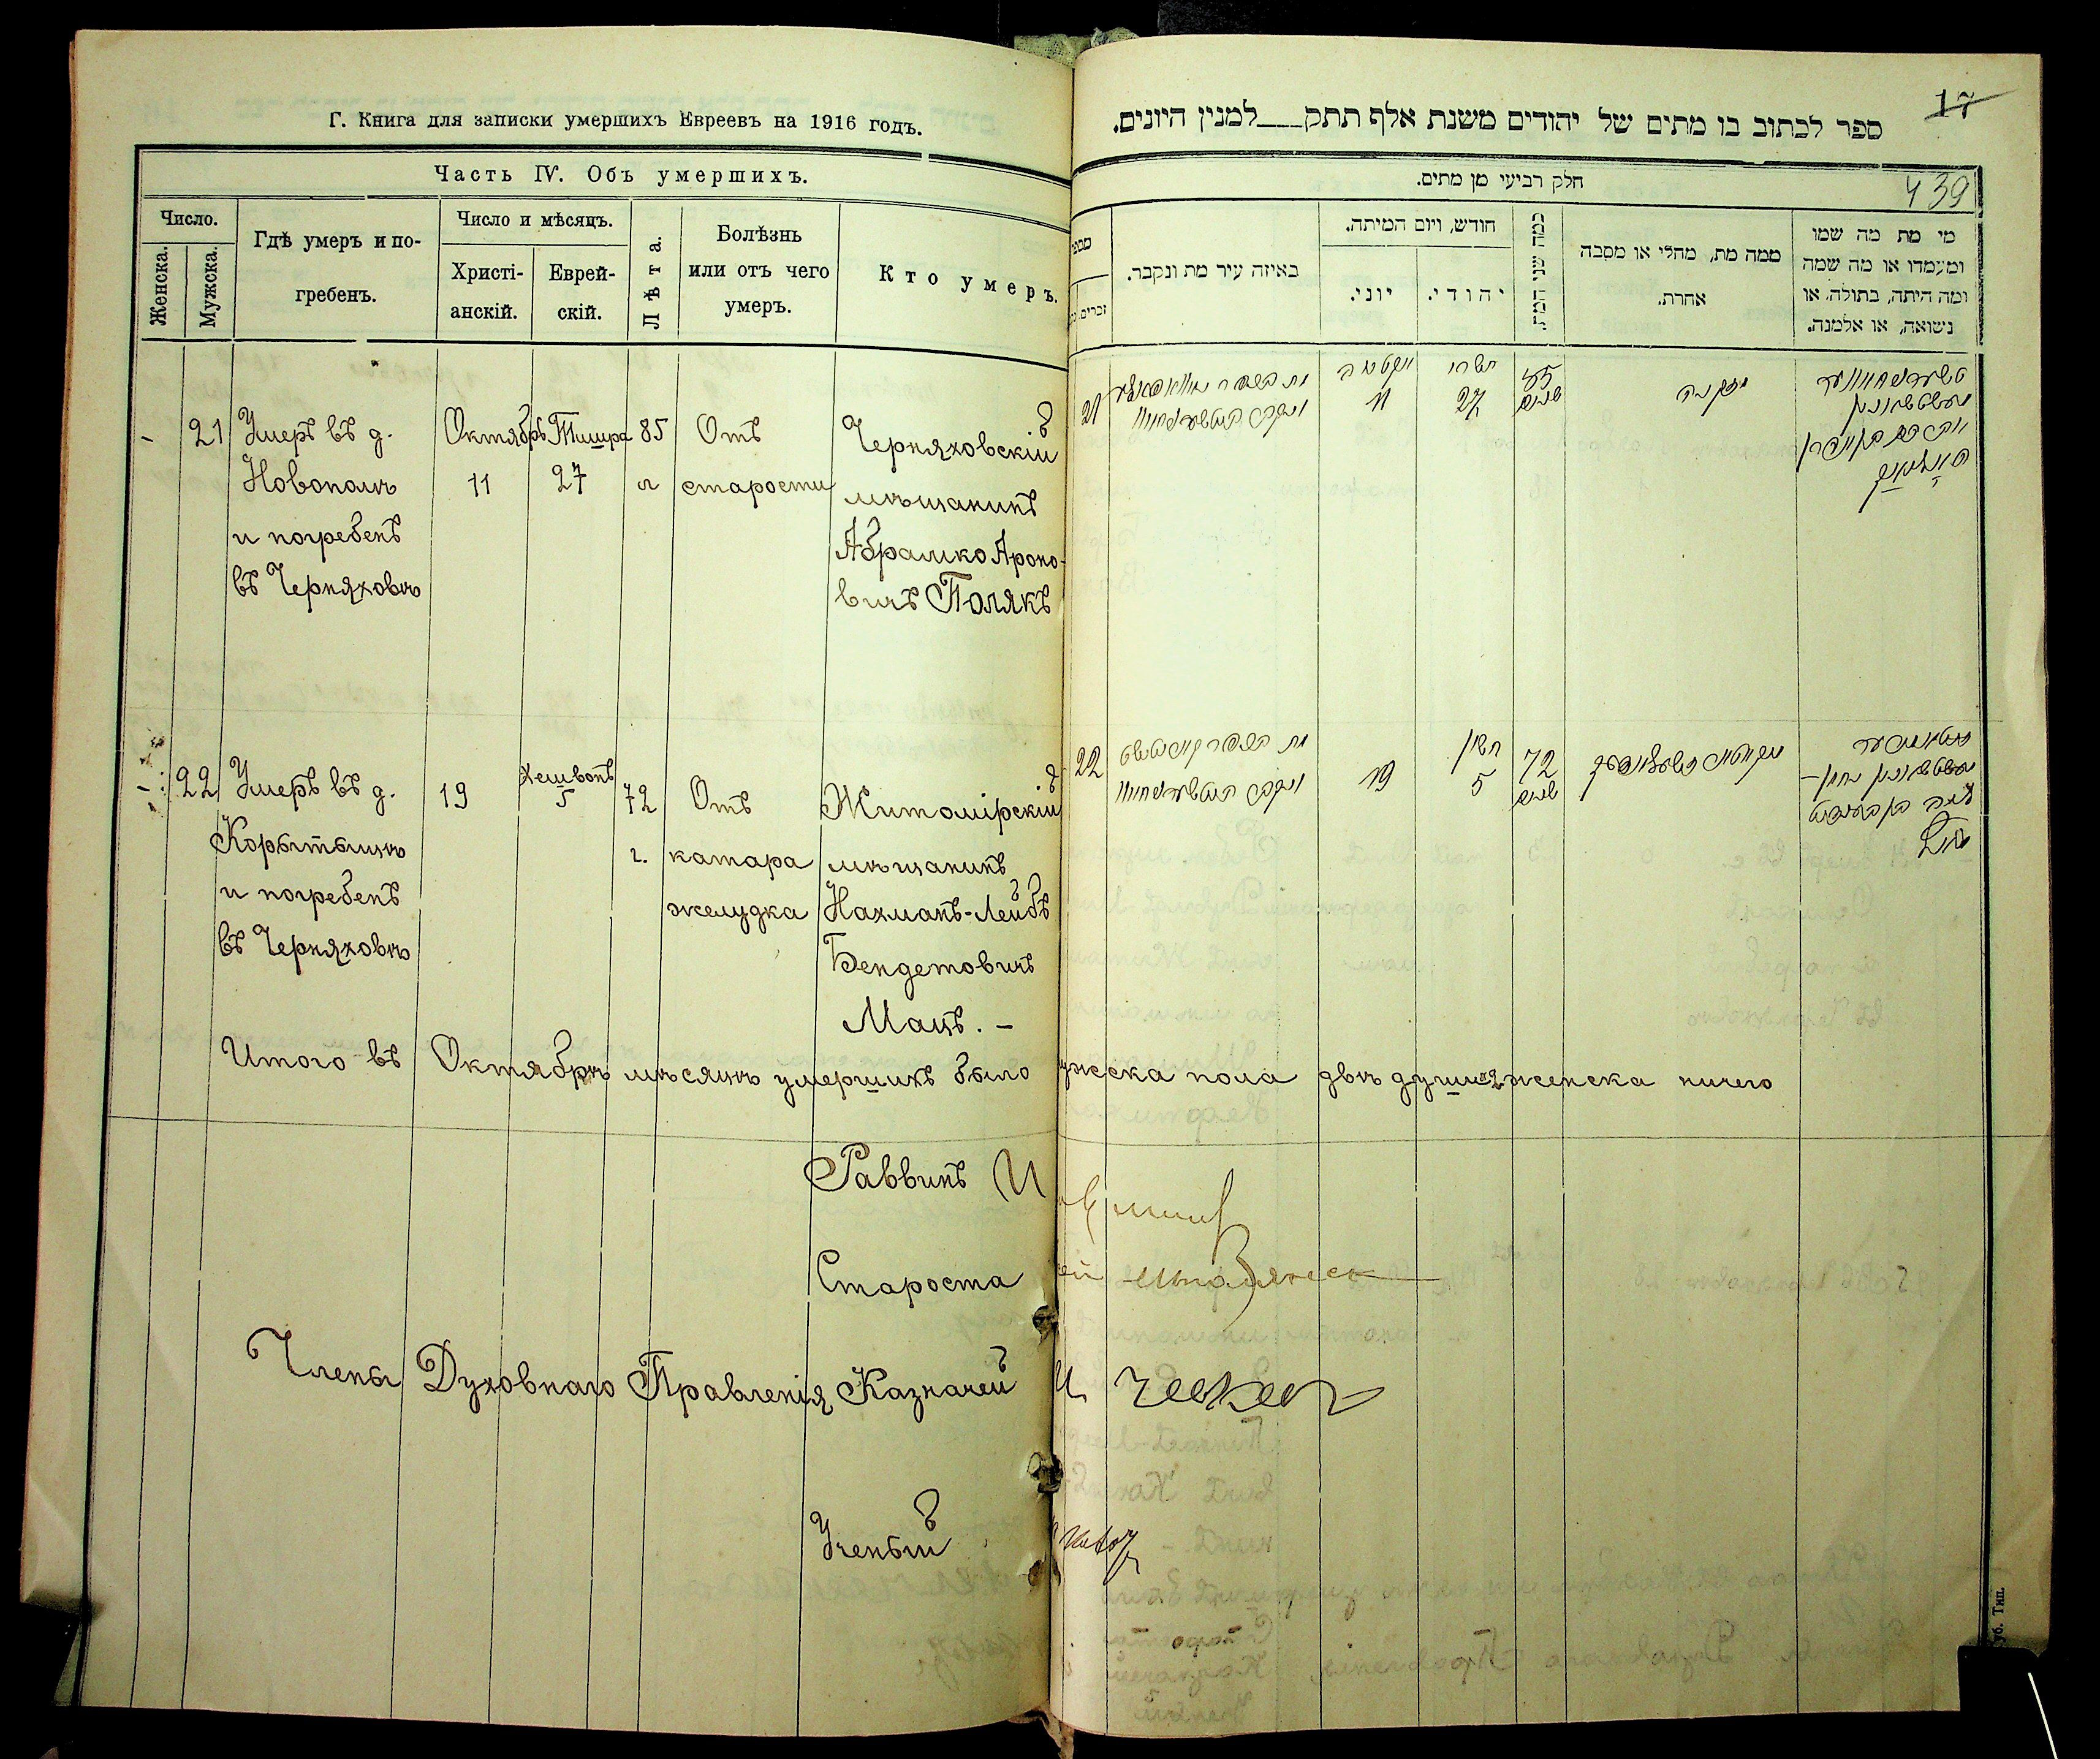 Г. Книга для записки умершихъ Евреевъ на 1916 годъ.
Часть IV. Объ умершихъ.
Число.
Женска.
Мужска.
Гдѣ умеръ и по-
гребенъ.
Число и мѣсяцъ.
Христі-
анскій.
Еврей-
скій.
Лѣта.
Болѣзнь
или отъ чего
умеръ.
Кто умеръ.
21
Умеръ въ д.
Новополѣ
и погребенъ
въ Черняховѣ
Октябрь
11
Тишра
27
85
л
Отъ
старости
Черняховскій
мѣщанинъ
Абрамко Ароно-
вичъ Полякъ
22
Умеръ въ д.
Корытыщѣ
и погребенъ
въ Черняховѣ
19
Хешвонъ
5
72
г.
Отъ
катара
желудка
Житомірскій
мѣщанинъ
Нахманъ-Лейбъ
Бендетовичъ
Мацъ. -
Итого въ Октябрѣ мѣсяцѣ умершихъ было
ужеска пола двѣ души 2 женска ничего
Раввинъ
Староста
Члены Духовнаго Правленія Казначей
Ученый
17
ספר לכתוב בו מתים של יהודים משנת אלף תתק___למנין היונים.
439
חלק רביעי מן מתים.
מספ
זכרים.
באיזה עיר מת ונקבר.
חודש, ויום המיתה.
יוני.
יהודי.
כמה שני המת.
ממה מת, מחלי או מסבה
אחרת.
מי מת מה שמו
ומעמדו או מה שמה
ומה היתה, בתולה, או
נשואה, או אלמנה.
21
11
תשרי
27
85
שנים
מזקנה
22
19
חשון
5
72
שנים
уб. Тип.